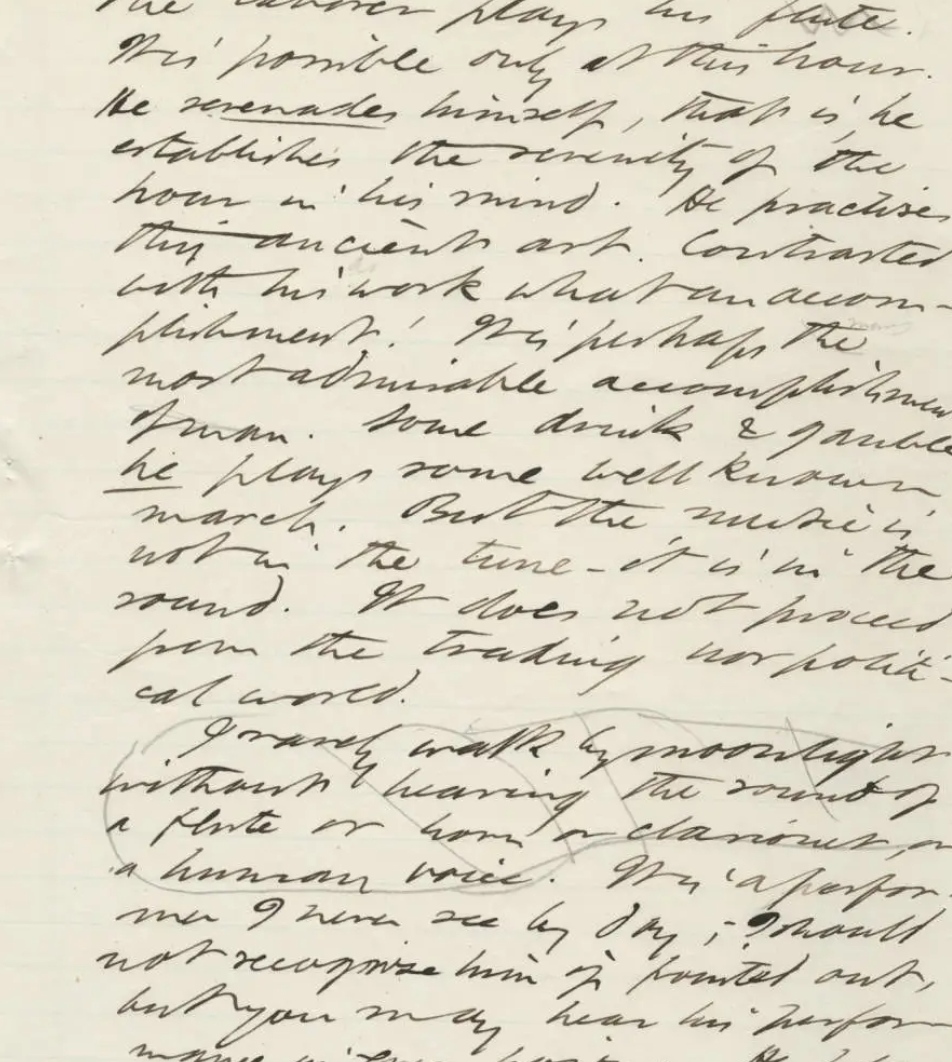 The laborer plays his flute.
It is possible only at this hour.
He serenades himself, that is, he
establishes the serenity of the
hour in his mind. He practises
this ancient art. Contrasted
with his work what an accom-
plishment! It is perhaps the
most admirable accomplishment
of man. Some drink & gamble
he plays some well known
march. But the music is
not in the tune – it is in the
sound. It does not proceed
from the trading nor politi-
cal world.
I rarely walk by moonlight
without hearing the sound of
a flute or horn or clarionet, or
a human voice. It is a perfor
mer I never see by day; I should
not recognise him if pointed out,
but you may hear his perfor
mance in every